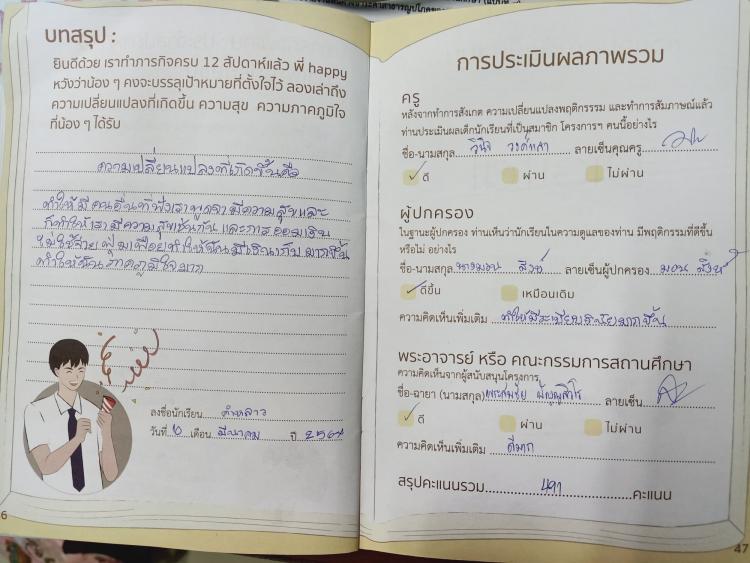 บทสรุป :
ยินดีด้วย เราทำภารกิจครบ 12 สัปดาห์แล้ว พี่ happy
หวังว่าน้อง ๆ คงจะบรรลุเป้าหมายที่ตั้งใจไว้ ลองเล่าถึง
ความเปลี่ยนแปลงที่เกิดขึ้น ความสุข ความภาคภูมิใจ
ที่น้อง ๆ ได้รับ
ความเปลี่ยนแปลงที่เกิดขึ้นคือ
ทำให้มีคนอื่นที่ฟังเราพูดจามีความสุขและ
ก็ทำให้เรามีความสุขเช่นกัน และการออมเงิน
ไม่ใช้จ่ายฟุ่มเฟือยทำให้ฉันมีเงินเก็บมากขึ้น
ทำให้ฉันภาคภูมิใจมาก
ลงชื่อนักเรียน คำหลาว
วันที่ เดือน มีนาคม ปี 2567
6
การประเมินผลภาพรวม
ครู
หลังจากทำการสังเกต ความเปลี่ยนแปลงพฤติกรรรม และทำการสัมภาษณ์แล้ว
ท่านประเมินผลเด็กนักเรียนที่เป็นสมาชิก โครงการฯ คนนี้อย่างไร
ชื่อ-นามสกุล วินิจ ลายเซ็นคุณครู
ดี ผ่าน ไม่ผ่าน
ผู้ปกครอง
ในฐานะผู้ปกครอง ท่านเห็นว่านักเรียนในความดูแลของท่าน มีพฤติกรรมที่ดีขึ้น
หรือไม่ อย่างไร
ชื่อ-นามสกุล นางมอน ลายเซ็นผู้ปกครอง มอน
ดีขึ้น เหมือนเดิม
ความคิดเห็นเพิ่มเติม ทำให้มีระเบียบวินัยมากขึ้น
พระอาจารย์ หรือ คณะกรรมการสถานศึกษา
ความคิดเห็นจากผู้สนับสนุนโครงการ
ชื่อ-ฉายา (นามสกุล) ลายเซ็น
ดี ผ่าน ไม่ผ่าน
ความคิดเห็นเพิ่มเติม ดีมาก
สรุปคะแนนรวม 491 คะแนน
47